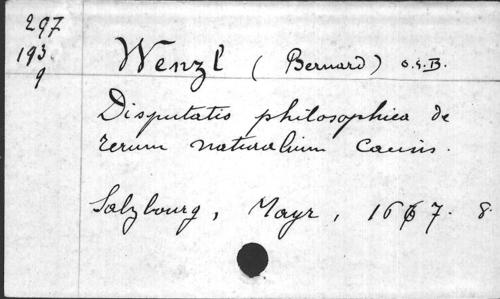 297
193
9
Wenzl (Bernard) O.S.B.
Disputatio philosophica de
rerum naturalium causis.
Salzbourg, Mayr, 1667. 8